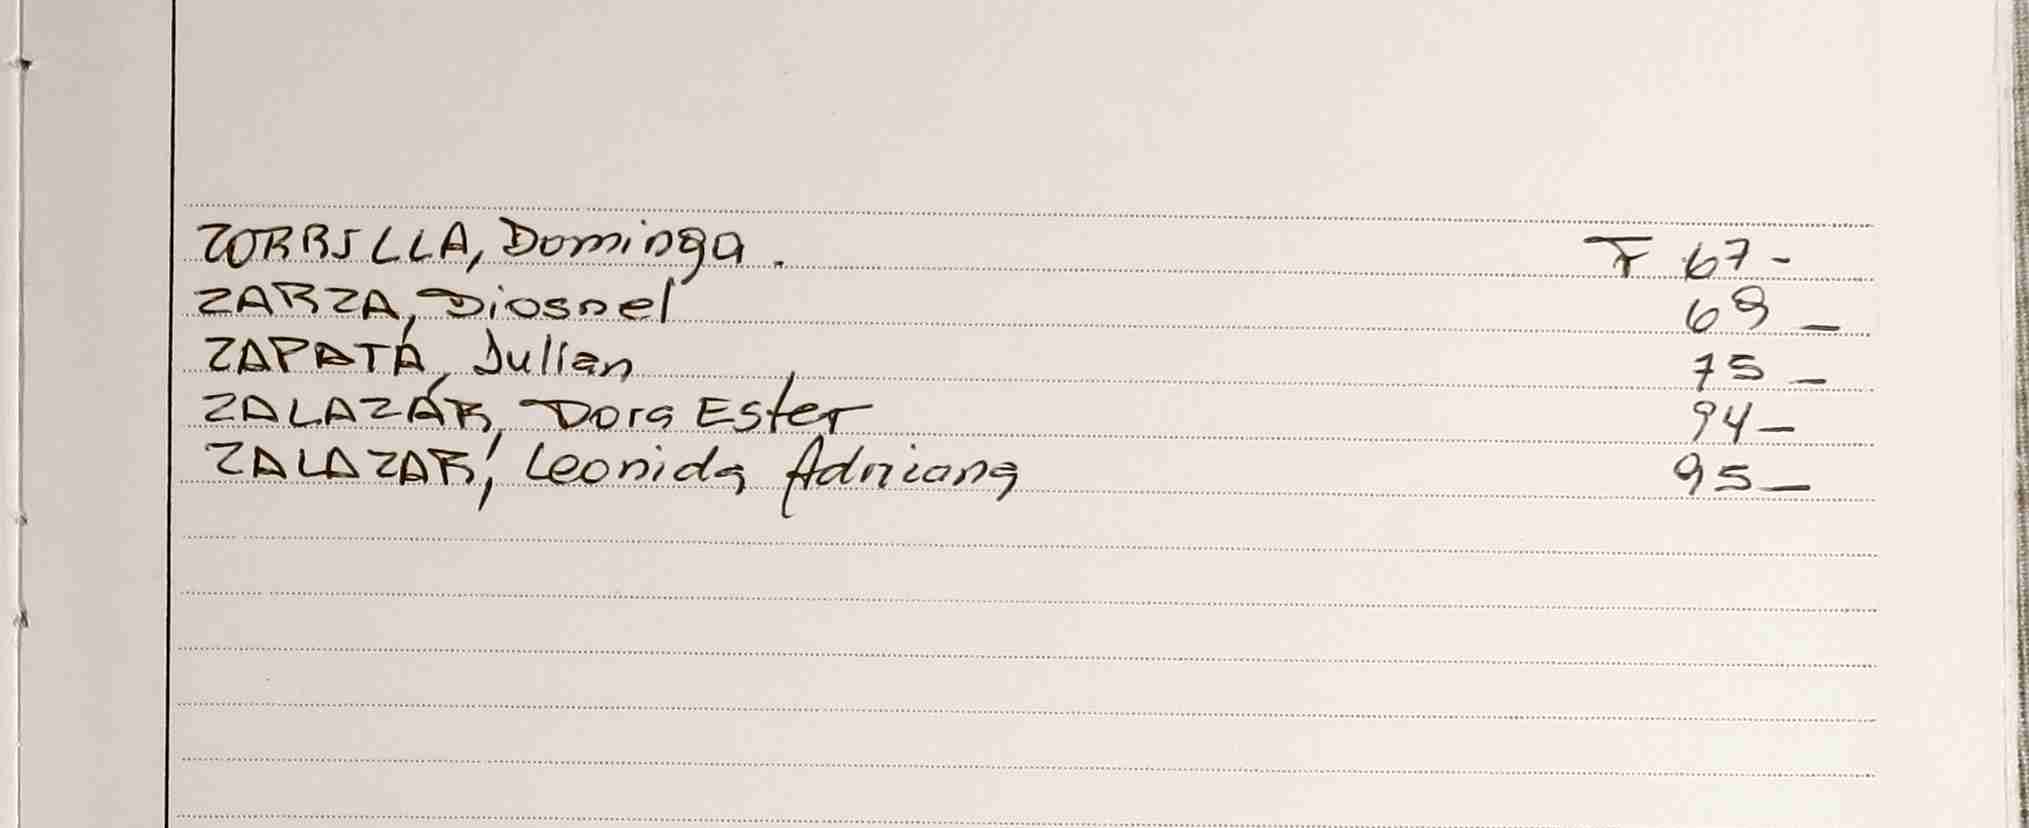 ZORRILLA, Dominga. F 67-
ZARZA, Diosnel 69-
ZAPATA, Julian 75-
ZALAZAR, Dora Ester 94-
ZALAZAR, Leonida Adriana 95-